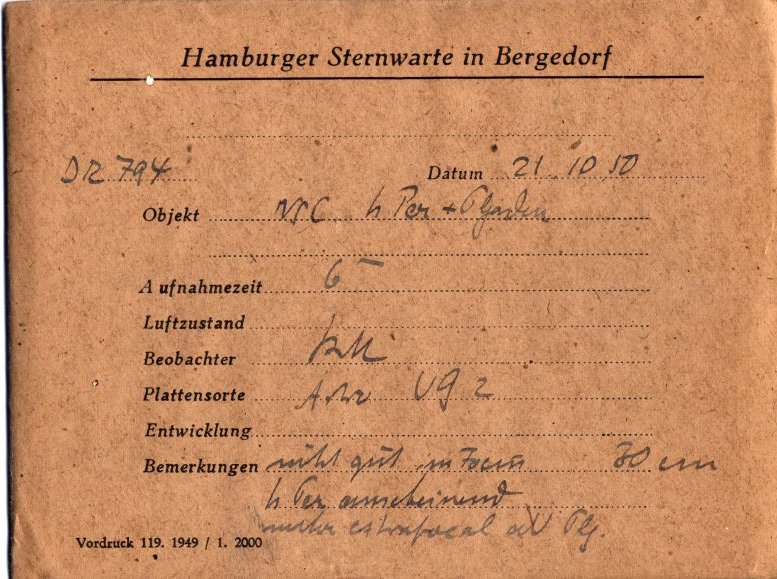 Hamburger Sternwarte in Bergedorf
DR 794
Datum 21 10 50
Objekt h Per +
Aufnahmezeit 6
Luftzustand
Beobachter
Plattensorte UG 2
Entwicklung
Bemerkungen nicht gut im Focus 70 cm
h Per anscheinend
extrafocal als Plj.
Vordruck 119. 1949 / 1. 2000